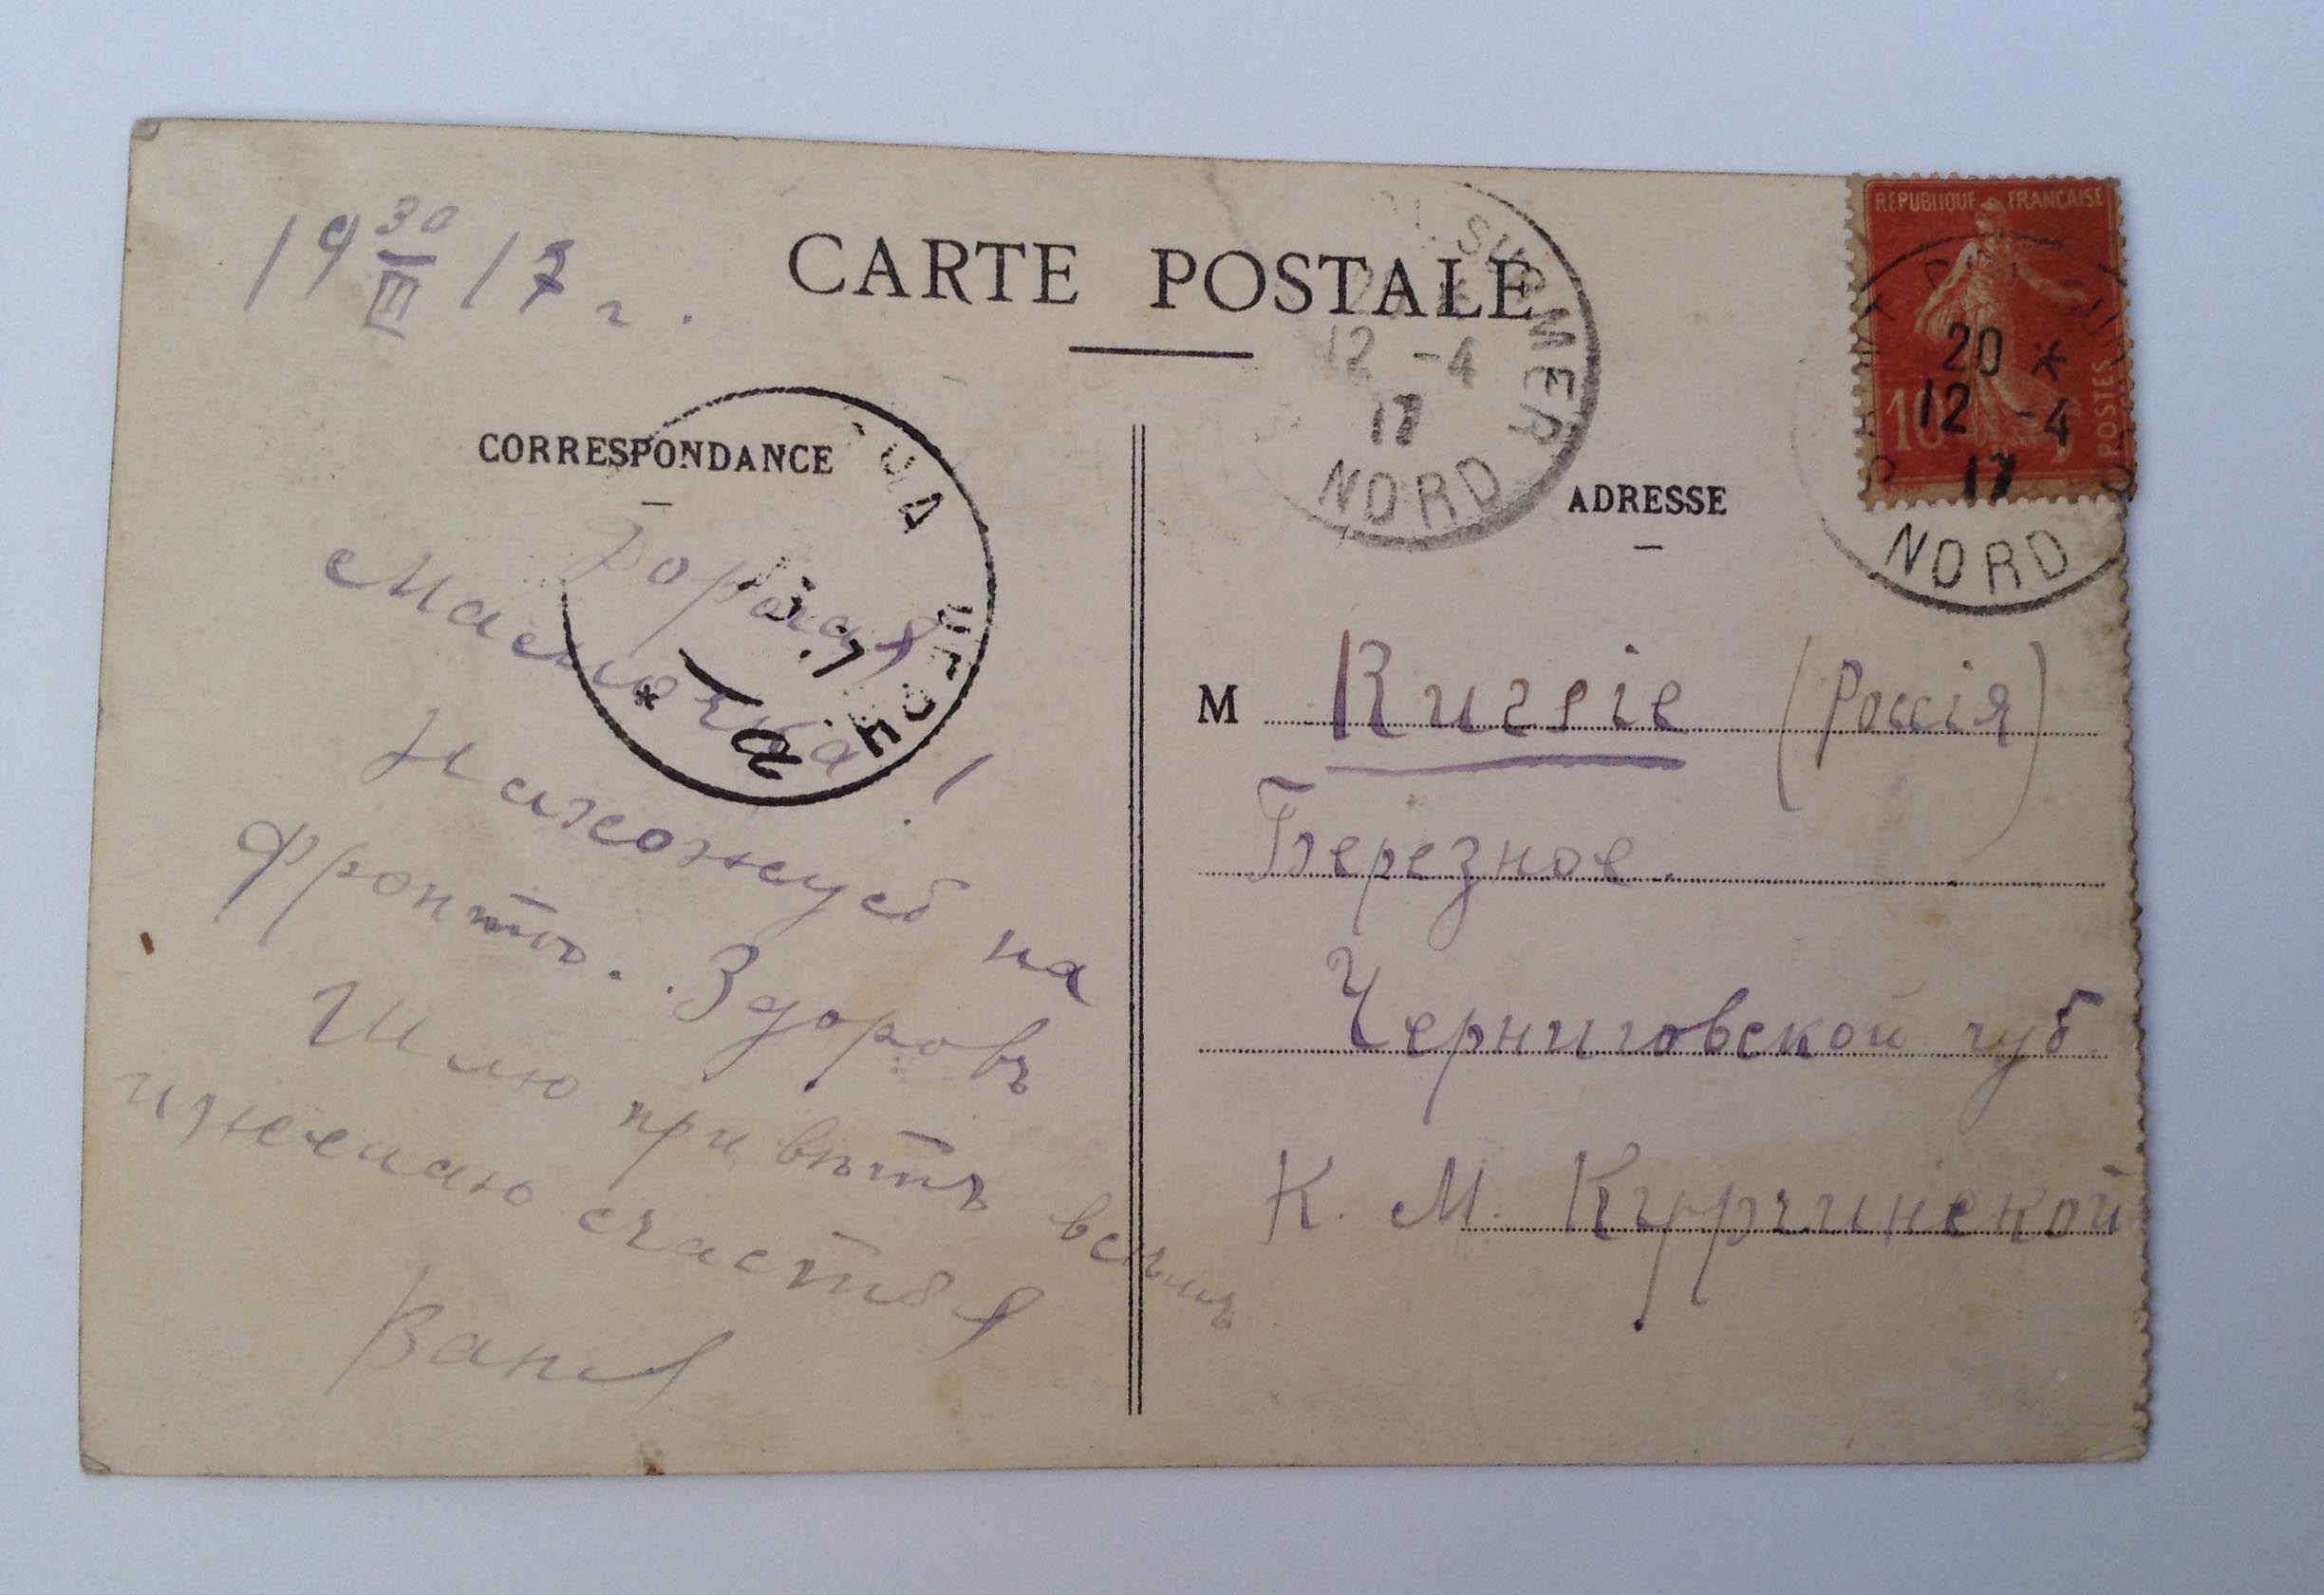 19 30/III 17 г.
CARTE POSTALE
CORRESPONDANCE
Дорогая
Мамочка!
Нахожусь на
фронтѣ. Здоровъ
Шлю привѣтъ всѣмъ
и желаю счастья
Ваня
SUR MER
12 -4
17
NORD
REPUBLIQUE FRANÇAISE
POSTES
10
20 *
12 -4
17
NORD
ADRESSE
M Russie (Россія)
Березное.
Черниговской губ.
К. М.